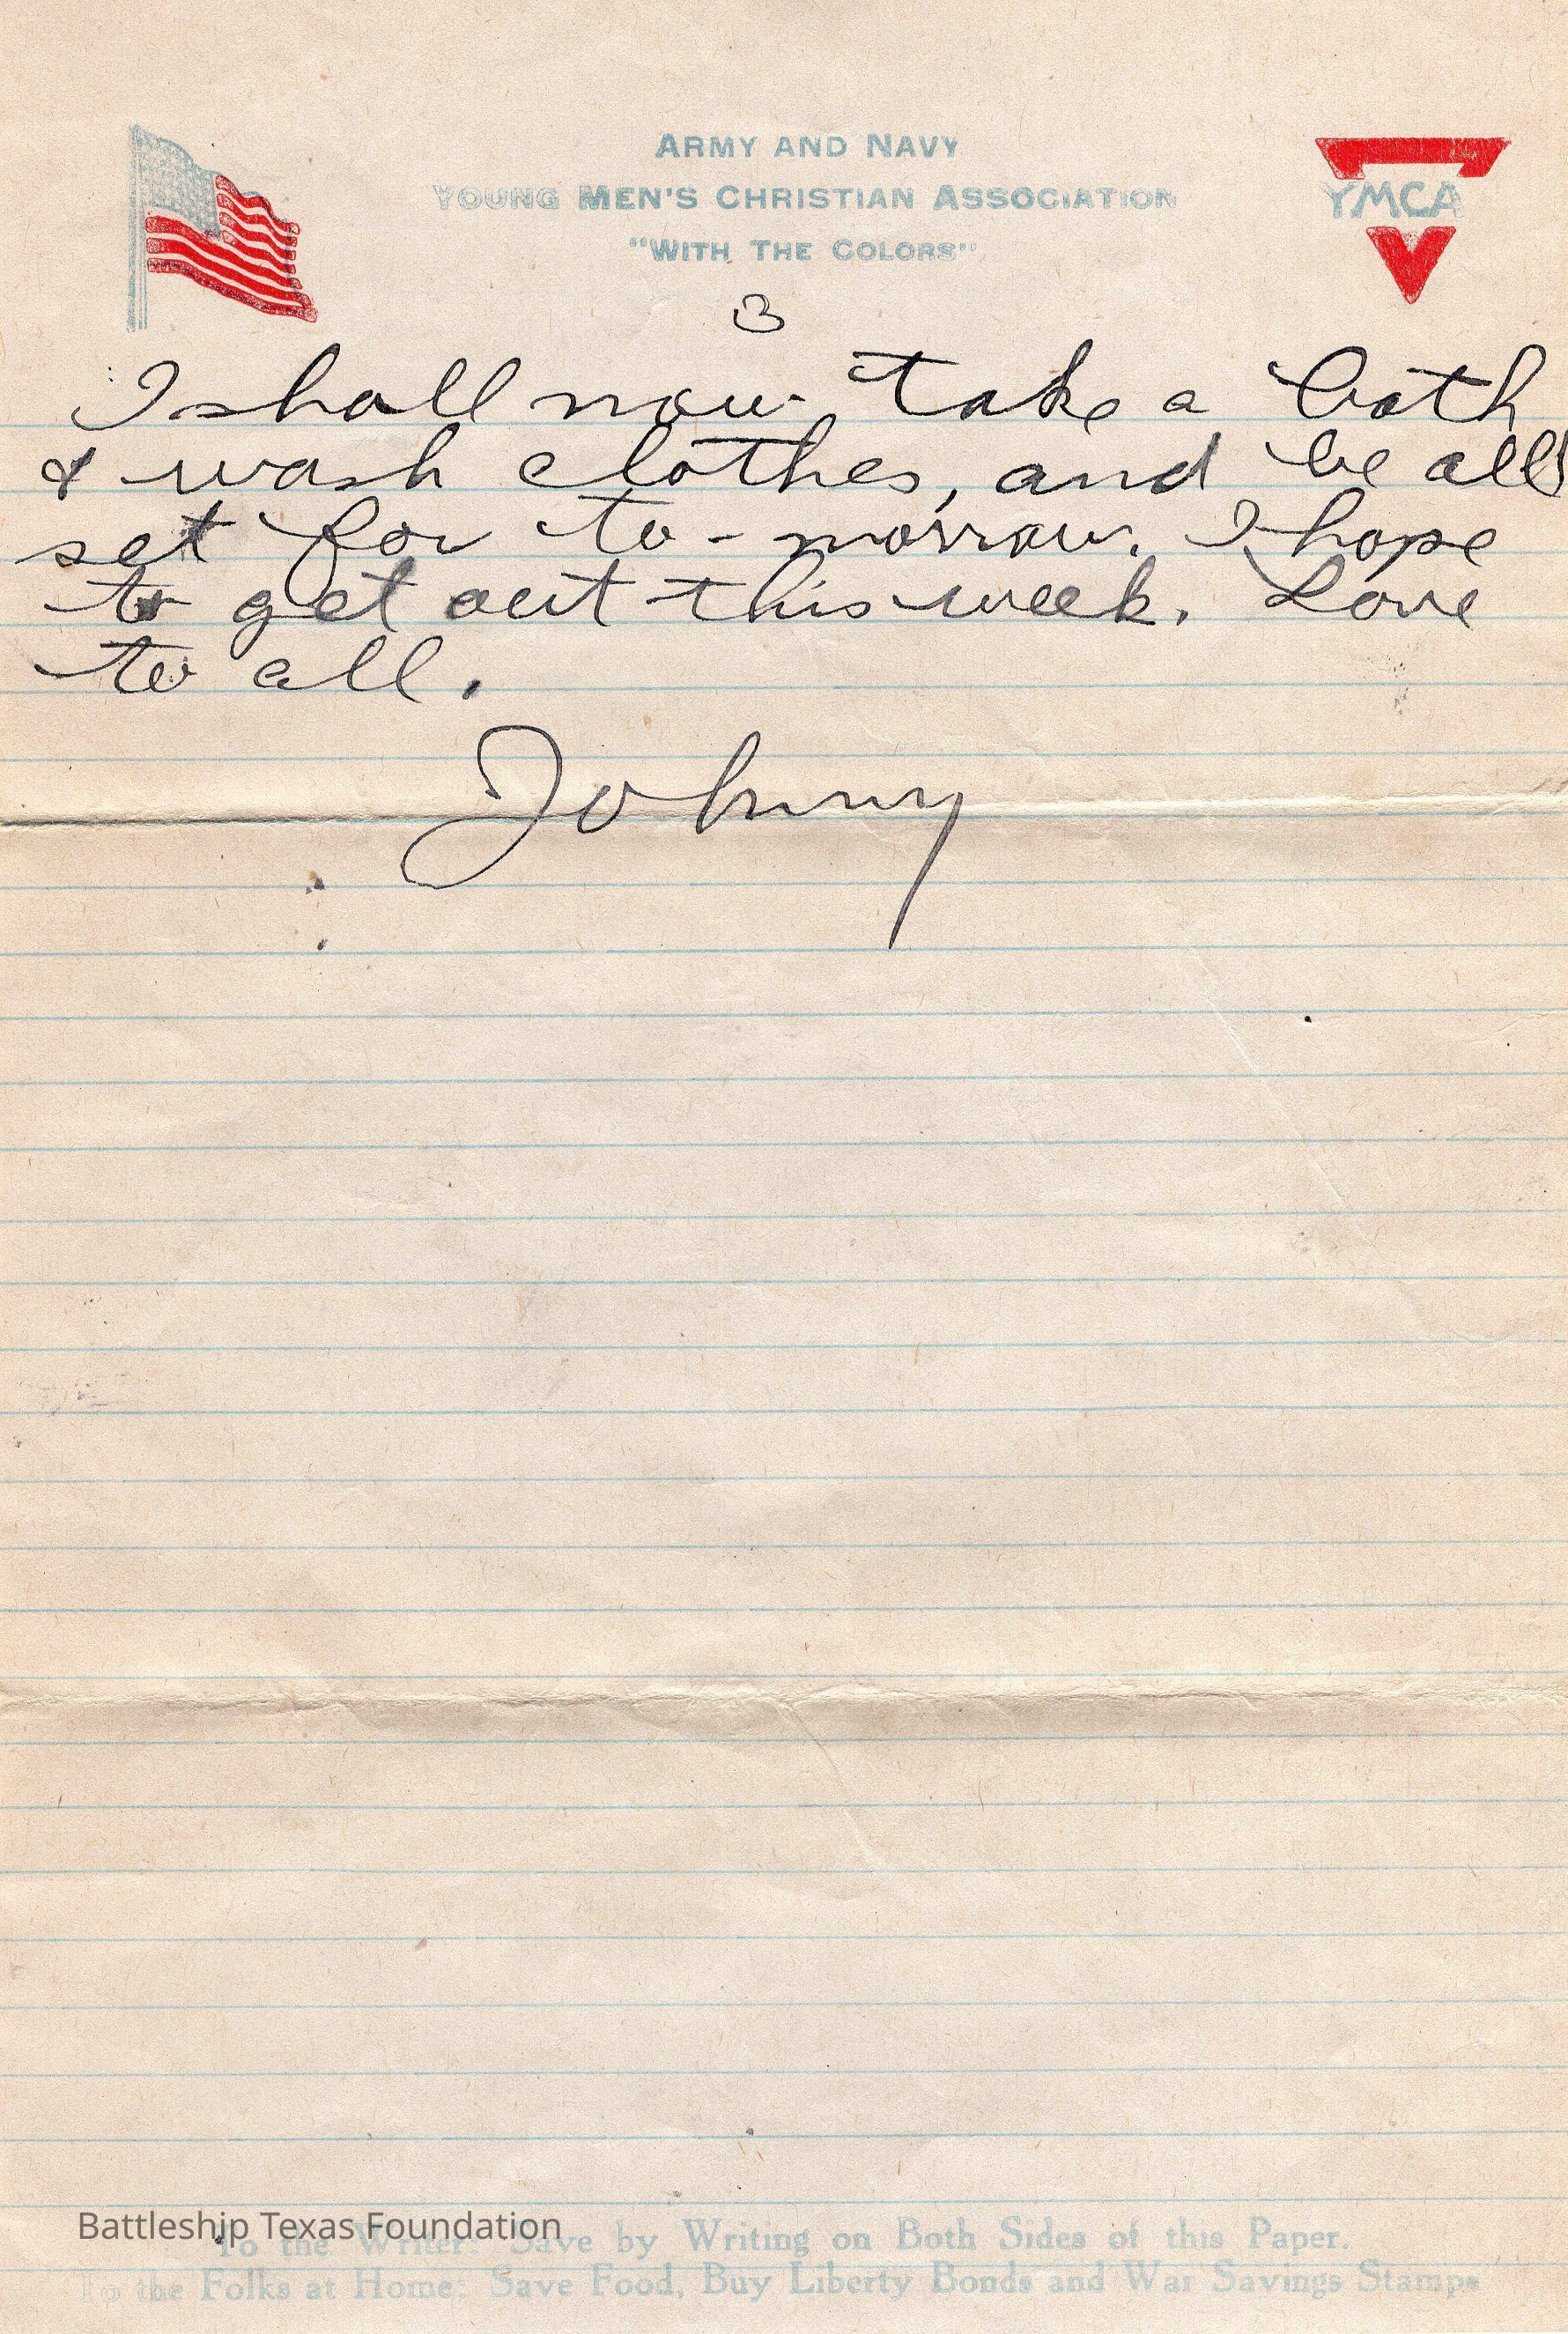 ARMY AND NAVY
YOUNG MEN'S CHRISTIAN ASSOCIATION
"WITH THE COLORS"
YMCA
3
I shall now take a bath
& wash clothes, and be all
set for to-morrow. I hope
to get out this week. Love
to all.
Johnny
Battleship Texas Foundation
To the Writer: Save by Writing on Both Sides of this Paper.
To the Folks at Home: Save Food, Buy Liberty Bonds and War Savings Stamps